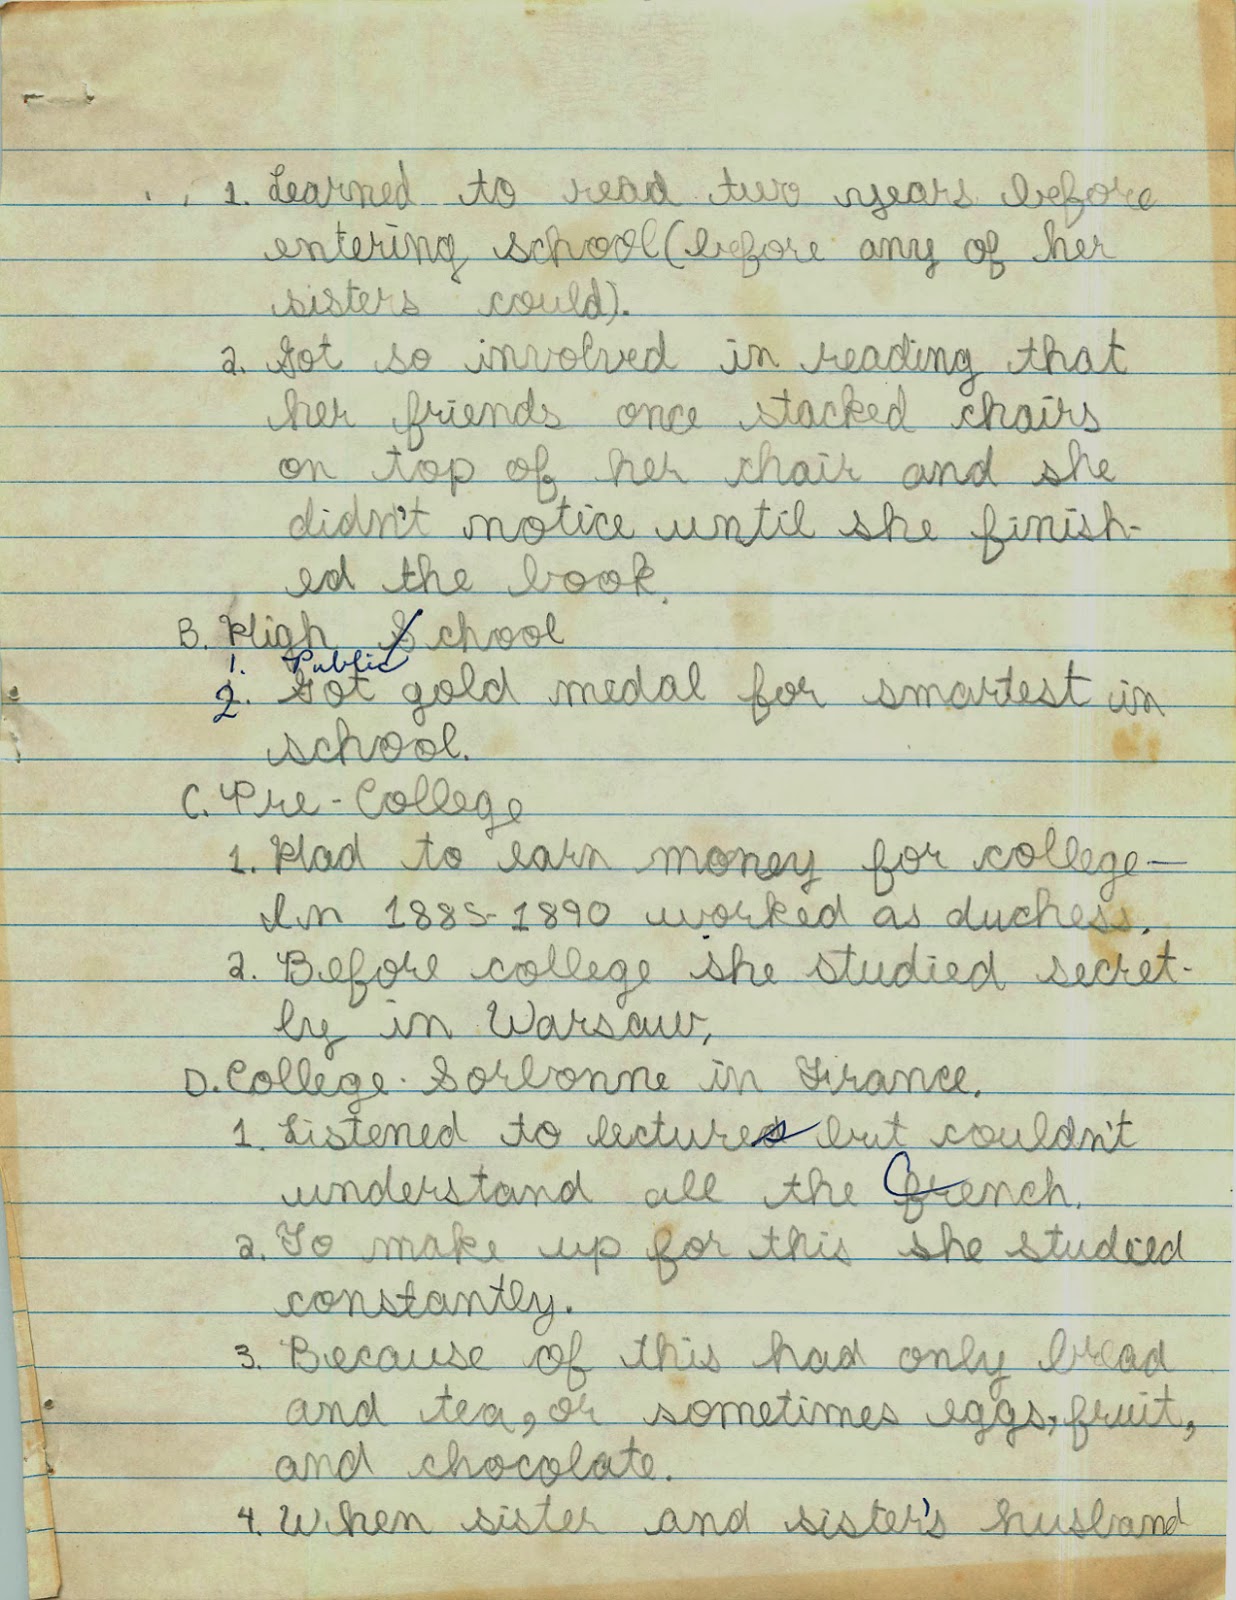 1. Learned to read two years before
entering school (before any of her
sisters could).
2. Got so involved in reading that
her friends once stacked chairs
on top of her chair and she
didn't notice until she finish-
ed the book.
B. High School
1. Public
2. Got gold medal for smartest in
school.
C. Pre-College
1. Had to earn money for college—
In 1885-1890 worked as duchess.
2. Before college she studied secret-
ly in Warsaw.
D. College. Sorbonne in France.
1. Listened to lectures but couldn't
understand all the french.
2. To make up for this she studied
constantly.
3. Because of this had only bread
and tea, or sometimes eggs, fruit,
and chocolate.
4. When sister and sister's husband